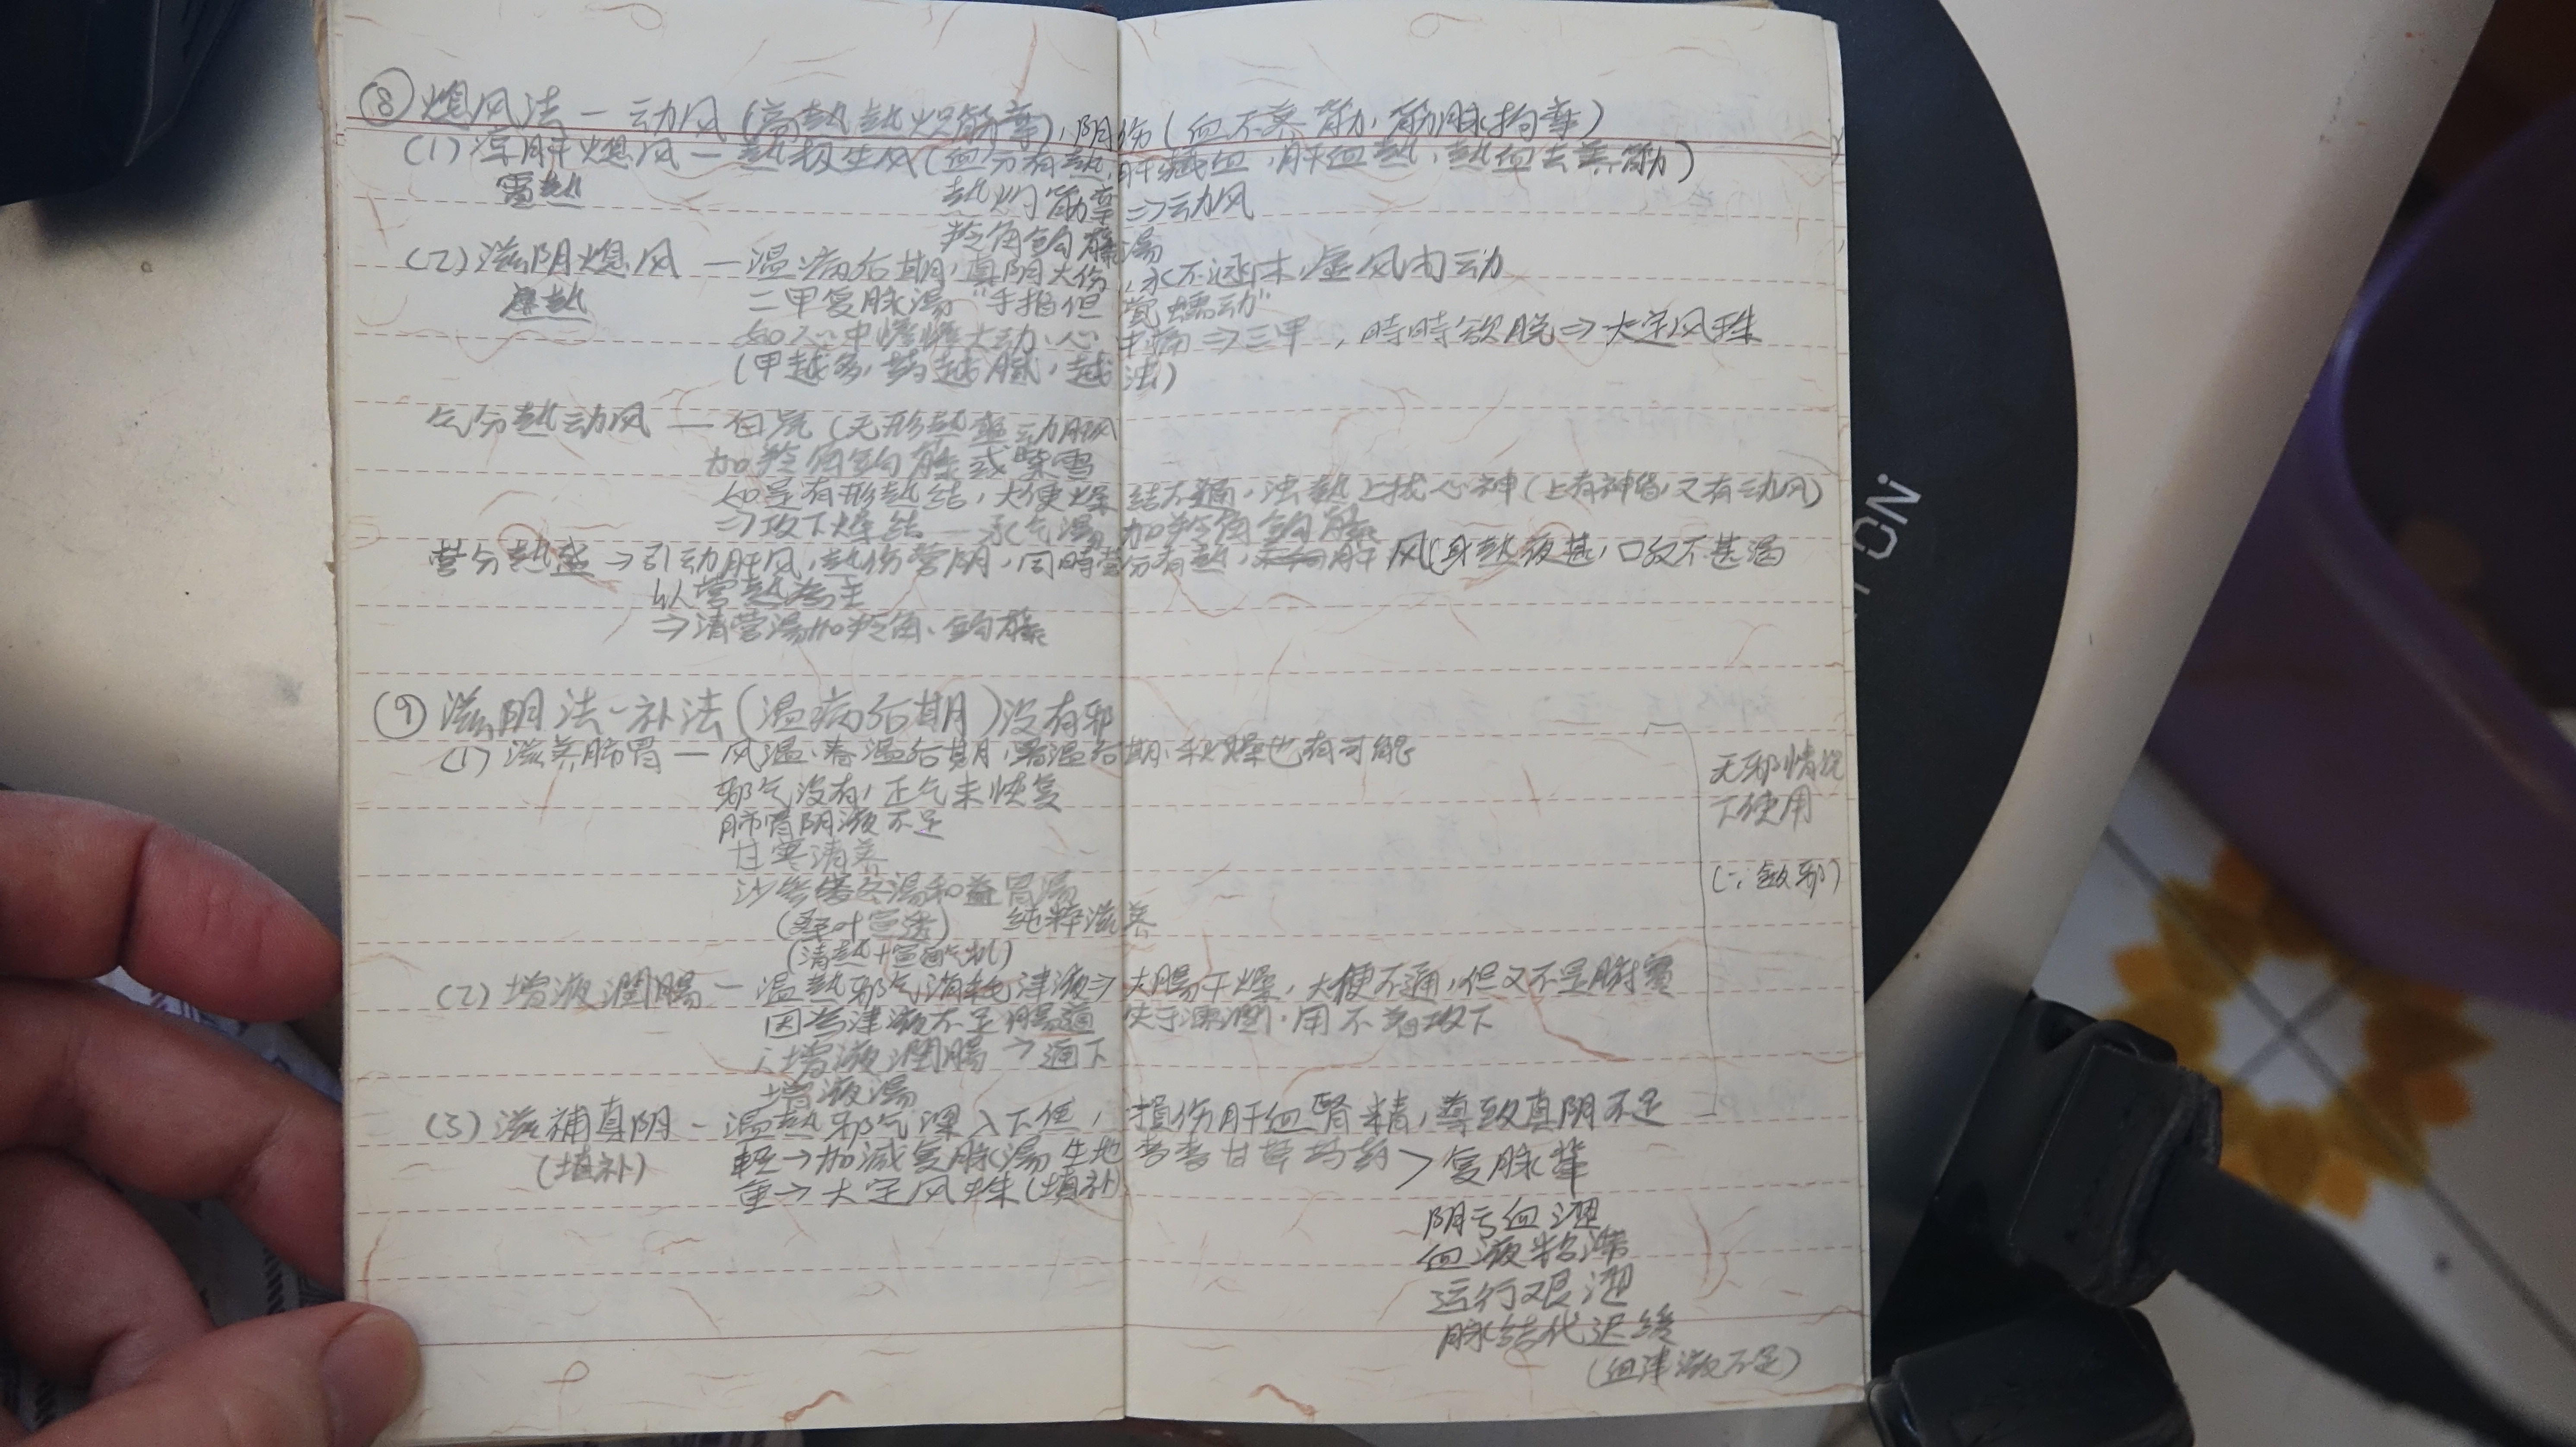 ⑧ 熄风法 — 动风(高热热炽筋挛), 阴伤(血不养筋, 筋脉拘挛)
(1) 凉肝熄风 — 热极生风(血分有热, 肝藏血, 肝血热, 热血去养筋)
實热 热灼筋挛 ⇒动风
羚角鈎藤湯
(2) 滋阴熄风 — 温病后期, 真阴大伤, 水不涵木, 虚风内动
虚热 二甲复脉湯 "手指但覺蠕动"
如心中憺憺大动、心中痛 ⇒ 三甲, 時時欲脱 ⇒ 大定风珠
(甲越多, 药越腻, 越浊)
气分热动风 — 白虎(无形热盛动肝风
加羚角鈎藤或紫雪
如是有形热结, 大便燥结不通, 浊热上扰心神(上有神昏, 又有动风)
⇒攻下燥结 — 承气湯加羚角鈎藤
营分热盛 → 引动肝风, 热伤营阴, 同時营分有热, 肝风(身热夜甚, 口反不甚渴
以营热為主
⇒清营湯加羚角、鈎藤
⑨ 滋阴法-补法(温病后期)没有邪
(1) 滋养肺胃 — 风温、春温后期, 暑温后期、秋燥也有可能
邪气没有, 正气未恢复
肺胃阴液不足
甘寒清养
沙参麥冬湯和益胃湯
(桑叶宣透) 纯粹滋养
(清热+宣通气机)
无邪情况
下使用
(∵敛邪)
(2) 增液潤腸 — 温热邪气消耗津液⇒大腸干燥, 大便不通, 但又不是腑實
因為津液不足腸道失于濡潤, 用不着攻下
增液潤腸 → 通下
增液湯
(3) 滋補真阴 - 温热邪气深入下焦, 損伤肝血腎精, 導致真阴不足
(填补) 輕→加减复脉湯 生地 甘草 芍药 > 复脉輩
重→大定风珠(填补)
阴亏血澀
血液粘滞
运行艰澀
脉结代迟缓
(血津液不足)
TON